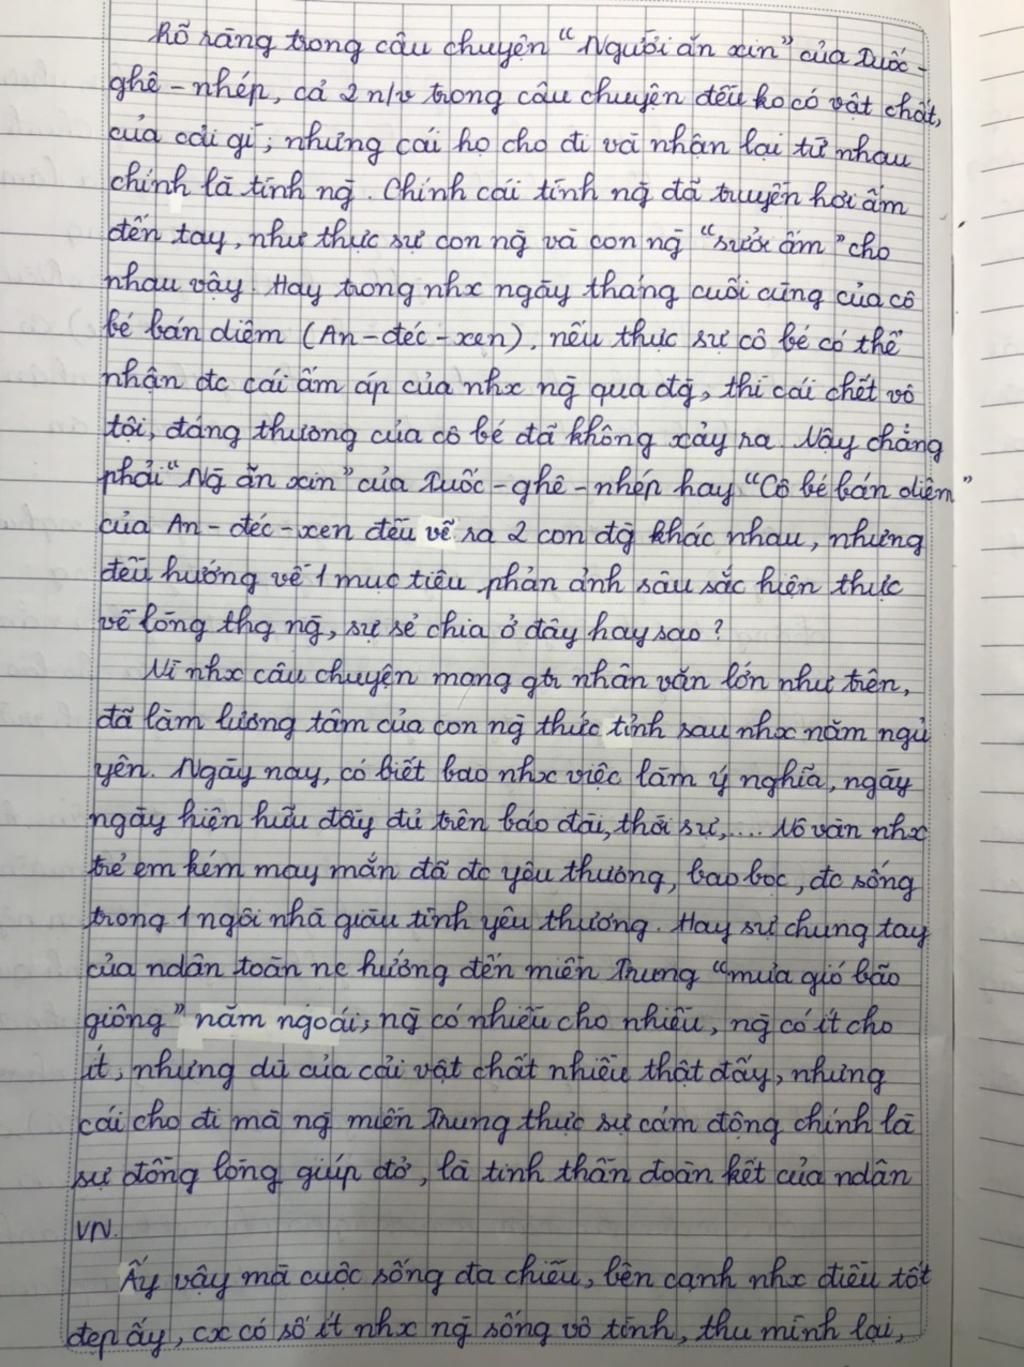 Rõ ràng trong câu chuyện "Người ăn xin" của Tuốc-
ghê - nhép, cả 2 n/v trong câu chuyện đều ko có vật chất,
của cải gì, nhưng cái họ cho đi và nhận lại từ nhau
chính là tình ng̃. Chính cái tình ng̃ đã truyền hơi ấm
đến tay, như thực sự con ng̃ và con ng̃ "sưởi ấm" cho
nhau vậy. Hay trong nhx ngày tháng cuối cùng của cô
bé bán diêm (An-đéc-xen), nếu thực sự cô bé có thể
nhận đc cái ấm áp của nhx ng̃ qua đg̃, thì cái chết vô
tội, đáng thương của cô bé đã không xảy ra. Vậy chẳng
phải "Ng̃ ăn xin" của Tuốc-ghê-nhép hay "Cô bé bán diêm"
của An-đéc-xen đều vẽ ra 2 con đg̃ khác nhau, nhưng
đều hướng về 1 mục tiêu phản ánh sâu sắc hiện thực
về lòng thg ng̃, sự sẻ chia ở đây hay sao?
Vì nhx câu chuyện mang gtr nhân văn lớn như trên,
đã làm lương tâm của con ng̃ thức tỉnh sau nhx năm ngủ
yên. Ngày nay, có biết bao nhx việc làm ý nghĩa, ngày
ngày hiện hữu đầy đủ trên báo đài, thời sự,.... Vô vàn nhx
trẻ em kém may mắn đã đc yêu thương, bao bọc, đc sống
trong 1 ngôi nhà giàu tình yêu thương. Hay sự chung tay
của ndân toàn nc hướng đến miền Trung "mưa gió bão
giông" năm ngoái, ng̃ có nhiều cho nhiều, ng̃ có ít cho
ít, nhưng dù của cải vật chất nhiều thật đấy, nhưng
cái cho đi mà ng̃ miền Trung thực sự cảm động chính là
sự đồng lòng giúp đỡ, là tinh thần đoàn kết của ndân
VN.
Ấy vậy mà cuộc sống đa chiều, bên cạnh nhx điều tốt
đẹp ấy, cx có số ít nhx ng̃ sống vô tình, thu mình lại,